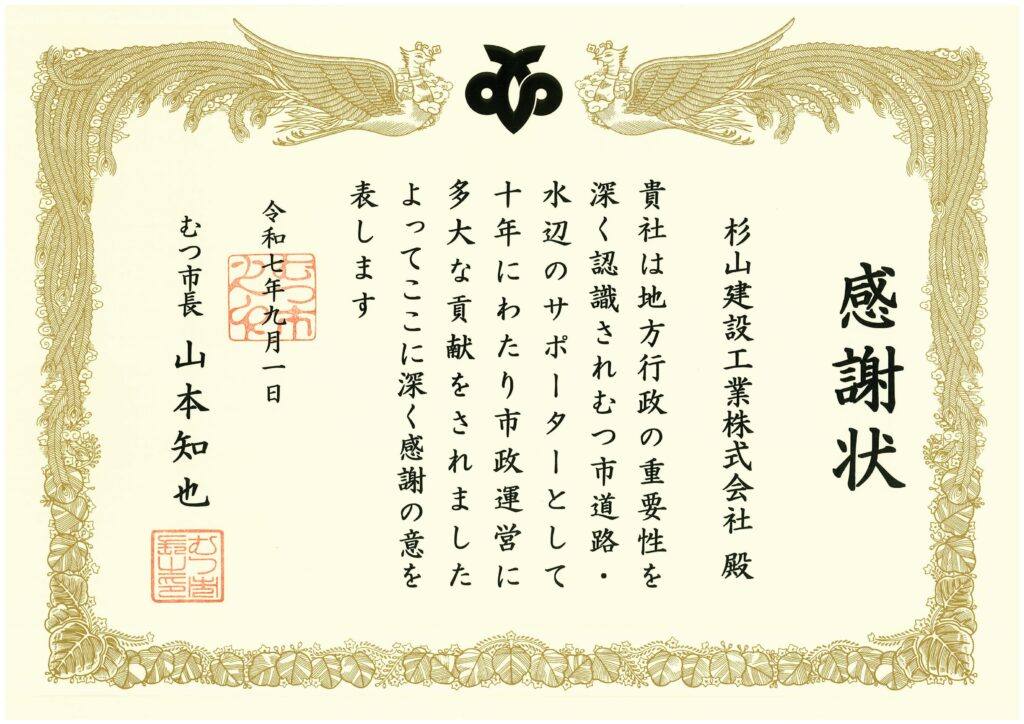 感謝状
杉山建設工業株式会社 殿
貴社は地方行政の重要性を
深く認識されむつ市道路・
水辺のサポーターとして
十年にわたり市政運営に
多大な貢献をされました
よってここに深く感謝の意を
表します
令和七年九月一日
むつ市長 山本知也